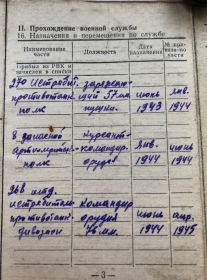 II. Прохождение военной службы
16. Назначения и перемещения по службе
Наименование части
Должность
Дата назначения
Прибыл из РВК и зачислен в списки
270 Истребит. заряжаю- июнь янв.
противотанк. щий 57мм 1943 1944
полк пушки.
8 запасной Курсант- янв. июнь
артиллерийск. командир 1944 1944
полк орудия
командир июнь апр.
истребительн. орудия 1944 1945
противотанк. 76 мм.
дивизион
— 3 —